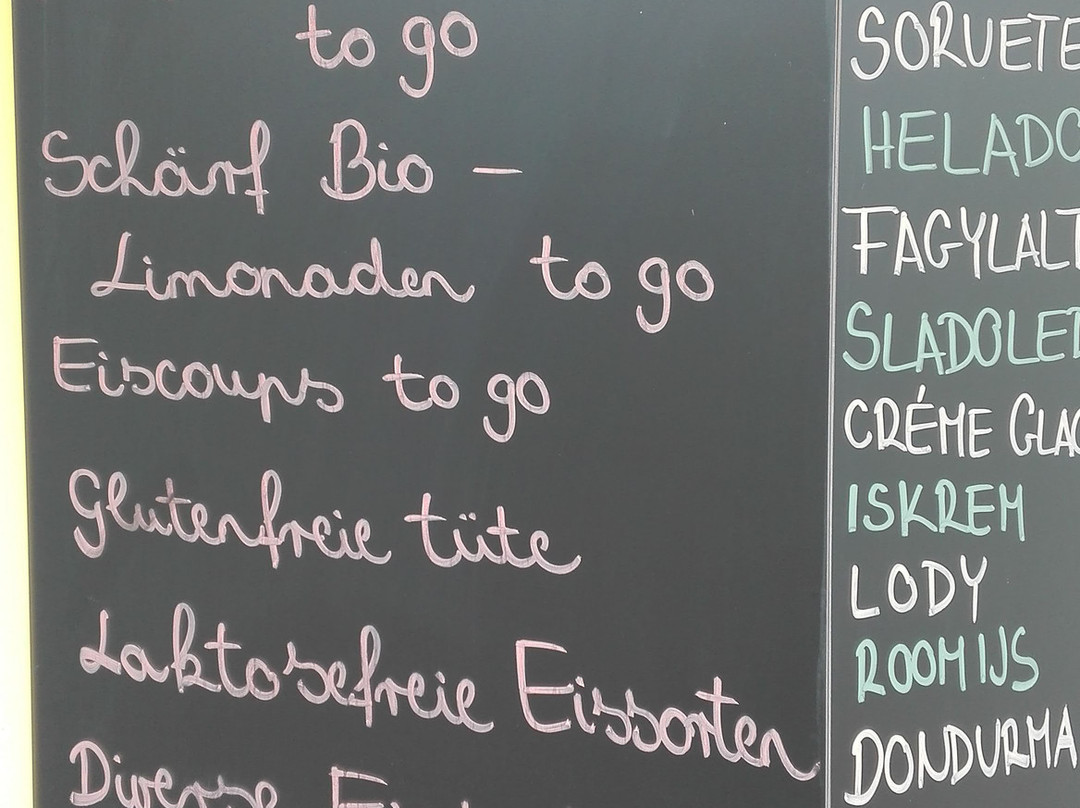 to go
Schärf Bio -
Limonaden to go
Eiscoups to go
Glutenfreie tüte
Laktosefreie Eissorten
Diverse
SORVETE
HELADO
FAGYLALT
SLADOLED
CRÉME GLAC
ISKREM
LODY
ROOMIJS
DONDURMA